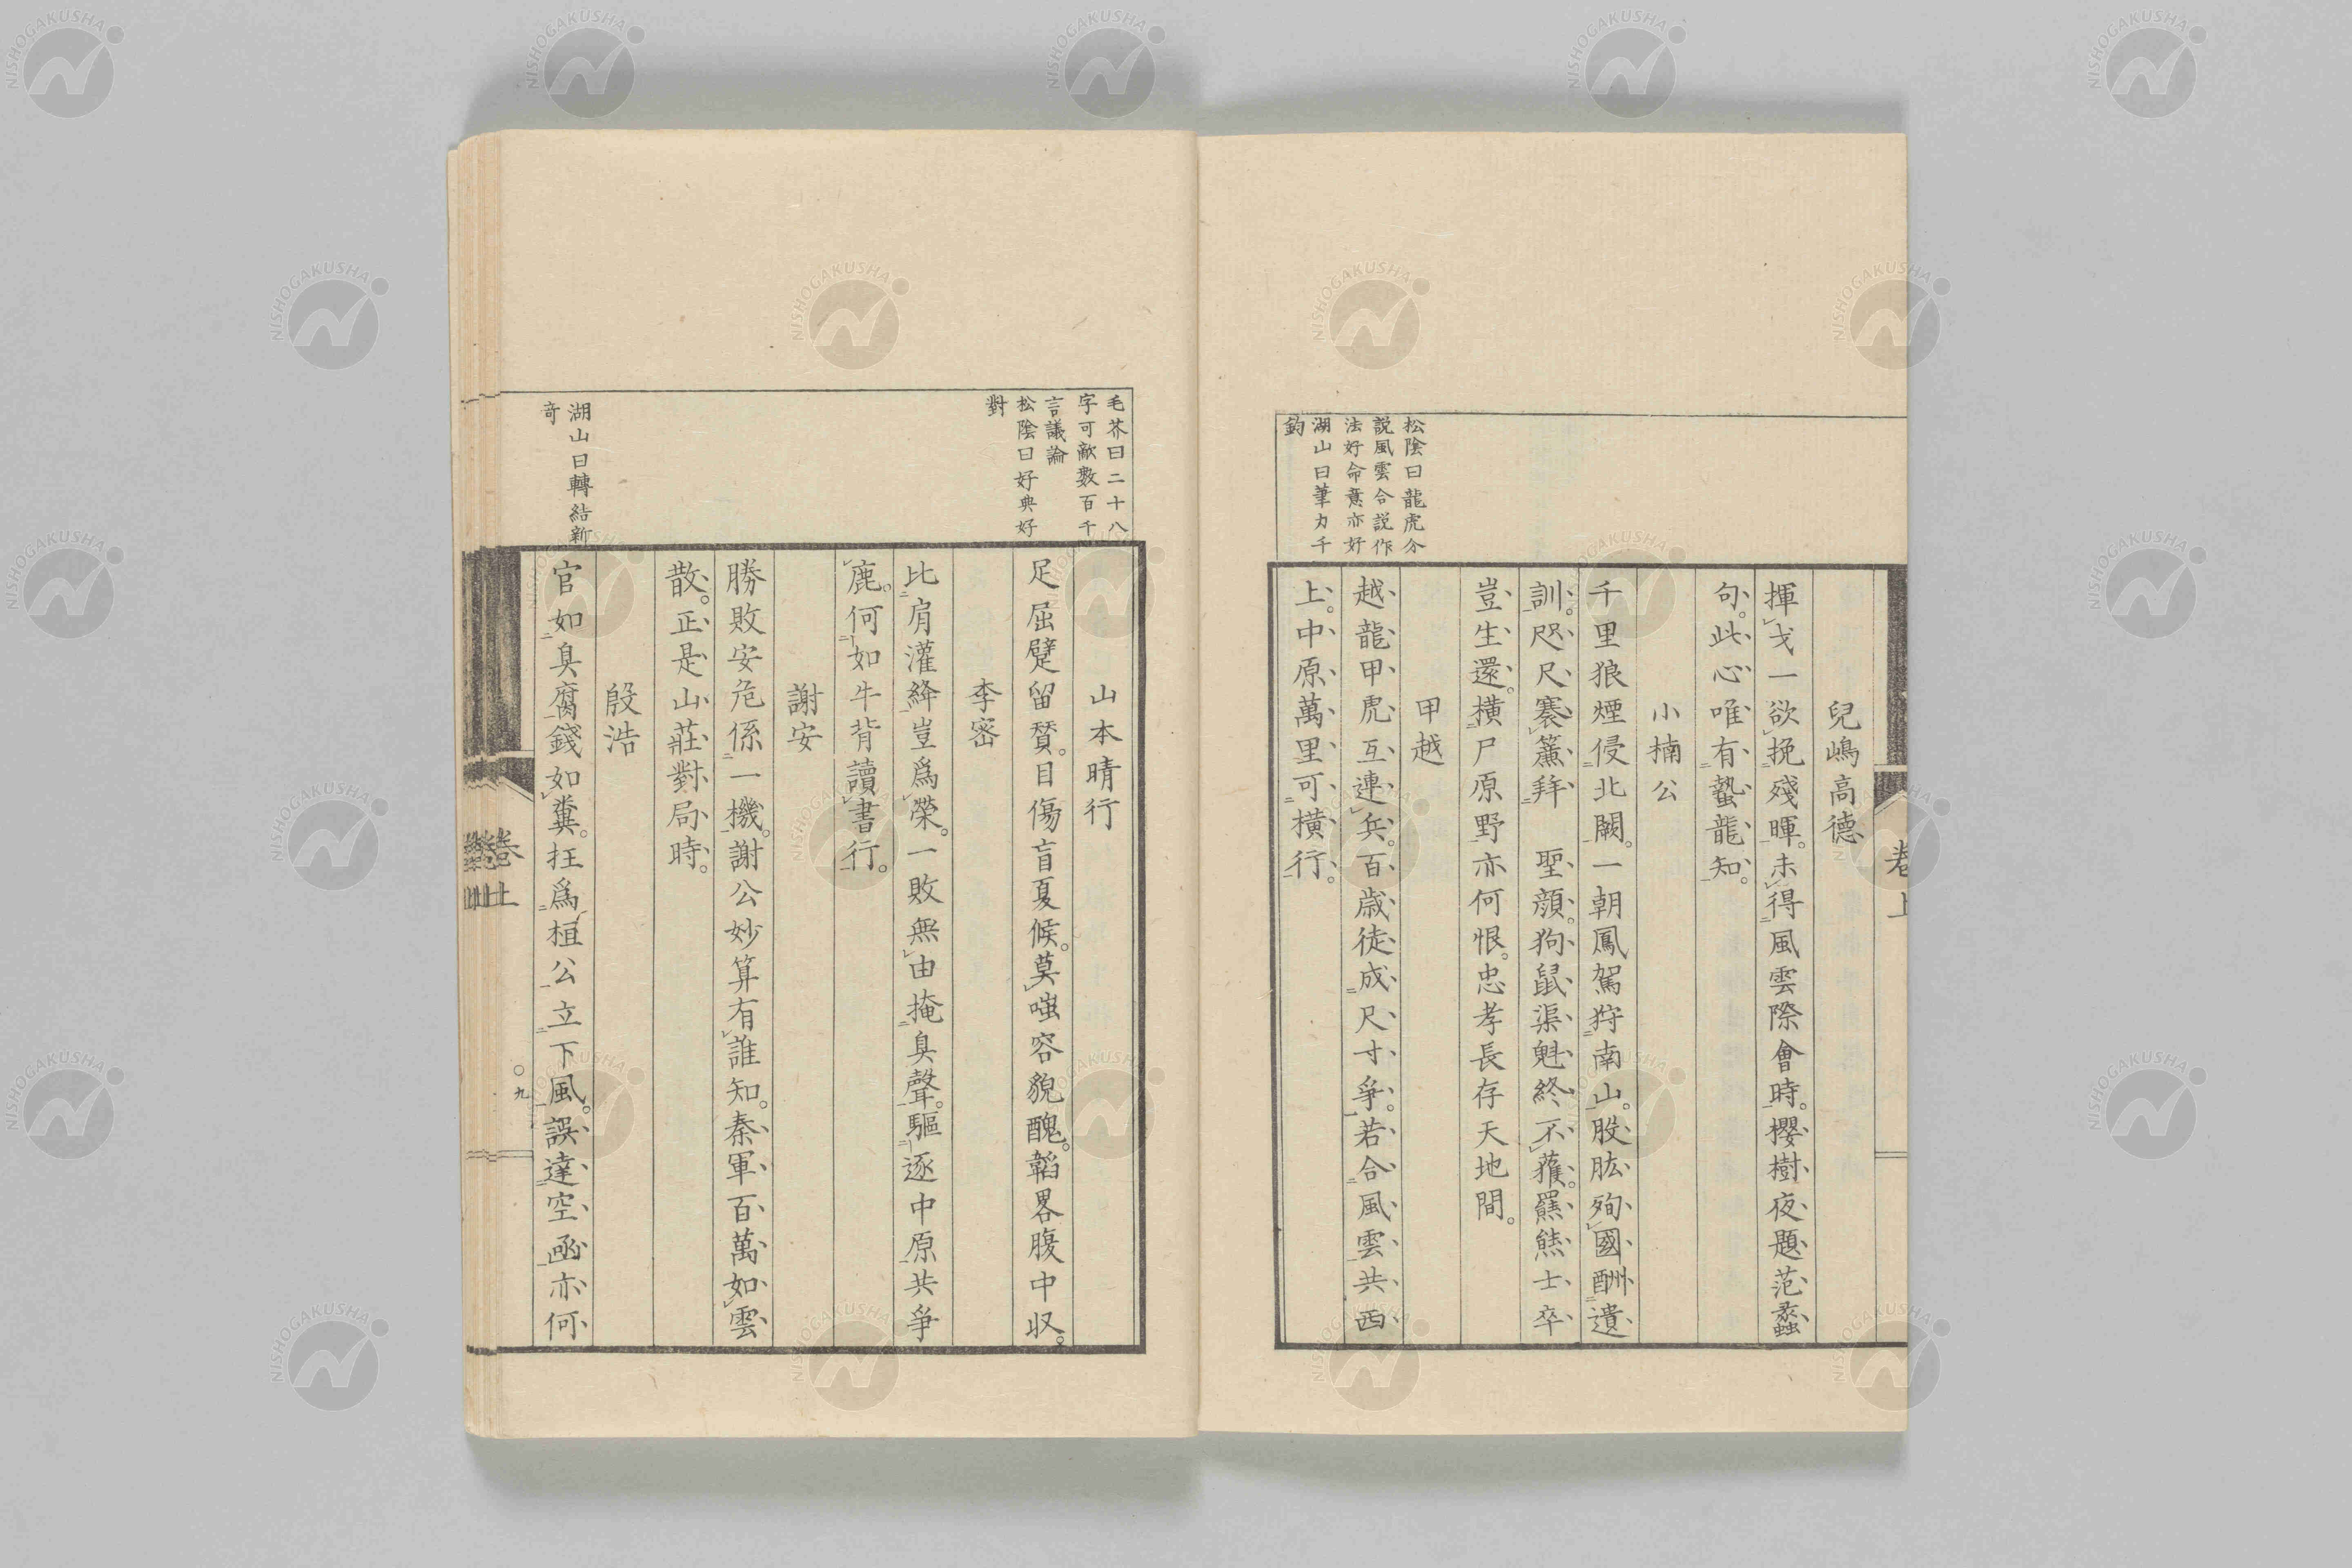 卷上
兒嶋高德
揮戈一欲挽殘暉。未得風雲際會時。櫻樹夜題范蠡
句。此心唯有蟄龍知。
小楠公
千里狼煙侵北闕。一朝鳳駕狩南山。股肱殉國酬遺
訓。咫尺褰簾拜 聖顏。狗鼠渠魁終不獲。羆熊士卒
豈生還。橫尸原野亦何恨。忠孝長存天地間。
甲越
越龍甲虎互連兵。百歲徒成尺寸爭。若合風雲共西
上。中原萬里可橫行。
松陰曰龍虎分
説風雲合説作
法好命意亦好
湖山曰筆力千
鈞
山本晴行
足屈躄留賛。目傷盲夏候。莫嗤容貌醜。韜畧腹中収。
李密
比肩灌絳豈爲榮。一敗無由掩臭聲。驅逐中原共爭
鹿。何如牛背讀書行。
謝安
勝敗安危係一機。謝公妙算有誰知。秦軍百萬如雲
散。正是山莊對局時。
殷浩
官如臭腐錢如糞。抂爲桓公立下風。誤達空凾亦何
毛芥曰二十八
字可敵數百千
言議論
松陰曰好典好
對
湖山曰轉結新
奇
卷上
〇九
NISHOGAKUSHA